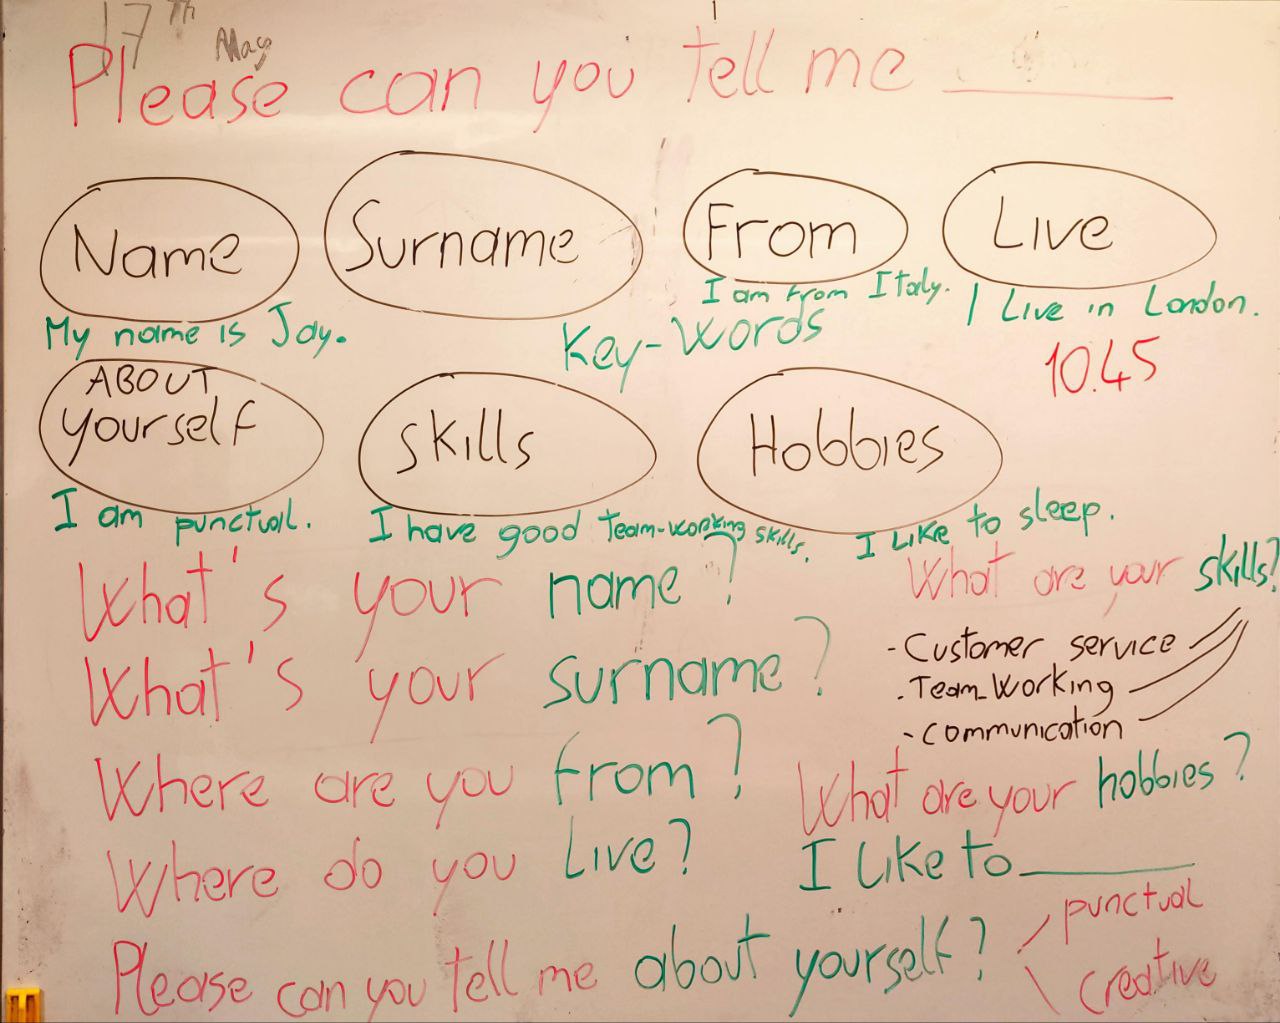 17th May
Please can you tell me ______
Name Surname From Live
I am from Italy. I Live in London.
My name is Jay. Key-Words
10.45
ABOUT
yourself skills Hobbies
I am punctual. I have good Team-working skills. I Like to sleep.
What's your name? What are your skills?
- Customer service
What's your surname? - Team-Working
- communication
Where are you from? What are your hobbies?
Where do you Live? I Like to ______
punctual
Please can you tell me about yourself? creative